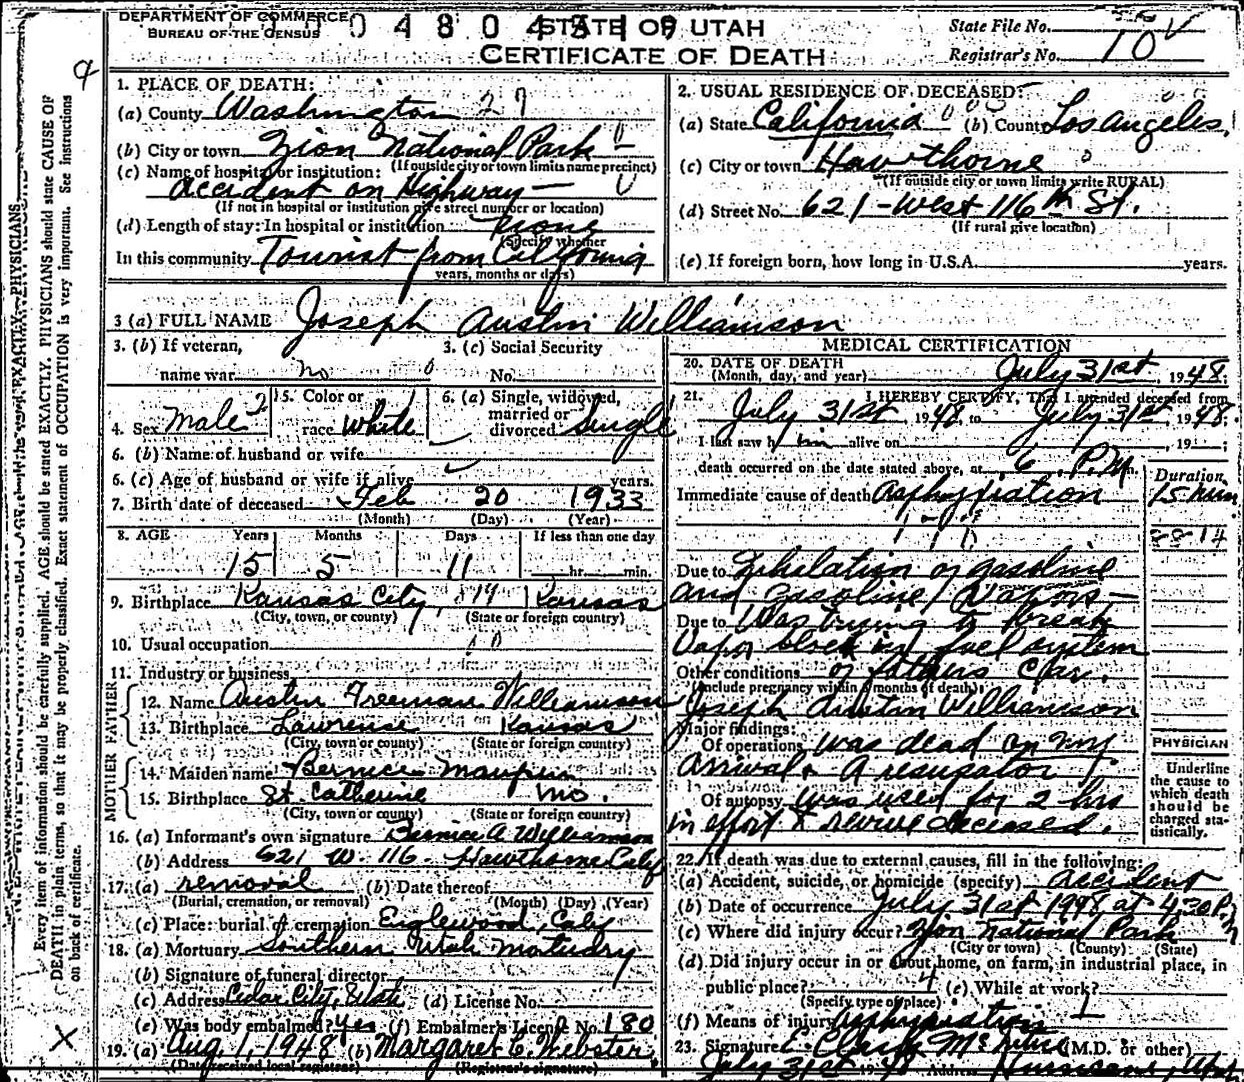 DEPARTMENT OF COMMERCE
BUREAU OF THE CENSUS
STATE OF UTAH
CERTIFICATE OF DEATH
State File No.
Registrar's No. 10
1. PLACE OF DEATH:
(a) County Washington 27
(b) City or town Zion National Park
(If outside city or town limits name precinct)
(c) Name of hospital or institution:
accident on Highway
(If not in hospital or institution give street number or location)
(d) Length of stay: In hospital or institution none
(Specify whether
In this community Tourist from California
years, months or days)
2. USUAL RESIDENCE OF DECEASED:
(a) State California (b) County Los Angeles
(c) City or town Hawthorne
(If outside city or town limits write RURAL)
(d) Street No. 621 - West 116th St.
(If rural give location)
(e) If foreign born, how long in U.S.A. years.
3 (a) FULL NAME Joseph Austin Williamson
3. (b) If veteran, 3. (c) Social Security
name war no No.
4. Sex Male 5. Color or race White 6. (a) Single, widowed, married or divorced Single
6. (b) Name of husband or wife
6. (c) Age of husband or wife if alive years.
7. Birth date of deceased Feb 20 1933
(Month) (Day) (Year)
8. AGE Years Months Days If less than one day
15 5 11 hr. min.
9. Birthplace Kansas City, Kansas
(City, town, or county) (State or foreign country)
10. Usual occupation
11. Industry or business
FATHER
12. Name Austin Freeman Williamson
13. Birthplace Lawrense Kansas
(City, town or county) (State or foreign country)
MOTHER
14. Maiden name Bernice Maupin
15. Birthplace St. Catherine Mo.
(City, town or county) (State or foreign country)
16. (a) Informant's own signature Bernice A Williamson
(b) Address 621 W. 116 - Hawthorne Calif
17. (a) removal (b) Date thereof
(Burial, cremation, or removal) (Month) (Day) (Year)
(c) Place: burial or cremation Englewood, Calif
18. (a) Mortuary Southern Utah Mortuary
(b) Signature of funeral director
(c) Address Cedar City, Utah (d) License No.
(e) Was body embalmed? yes (f) Embalmer's License No. 180
19. (a) Aug. 1, 1948 (b) Margaret C. Webster
(Date received local registrar) (Registrar's signature)
MEDICAL CERTIFICATION
20. DATE OF DEATH
(Month, day, and year) July 31st, 1948.
21. I HEREBY CERTIFY, That I attended deceased from
July 31st 1948, to July 31st, 1948.
I last saw him alive on 19
death occurred on the date stated above, at 6 P.M.
Duration
Immediate cause of death Asphyxiation 15 min
Due to Inhilation of gasoline
and Gasoline Vapors
Due to Was trying to break
Vapor block in fuel system
Other conditions of fathers Car.
(Include pregnancy within 3 months of death)
Joseph Austin Williamson
Major findings:
Of operations was dead on my
arrival. A resusator
Of autopsy was used for 2 hrs
in effort to revive deceased.
PHYSICIAN
Underline
the cause to
which death
should be
charged sta-
tistically.
22. If death was due to external causes, fill in the following:
(a) Accident, suicide, or homicide (specify) accident
(b) Date of occurrence July 31st 1948 at 4:30 P.M
(c) Where did injury occur? Zion National Park
(City or town) (County) (State)
(d) Did injury occur in or about home, on farm, in industrial place, in
public place? (e) While at work?
(Specify type of place)
(f) Means of injury Asphyxiation
23. Signature (M.D. or other)
July 31st 1948 Address Hurricane, Utah
Every item of information should be carefully supplied. AGE should be stated EXACTLY. PHYSICIANS should state CAUSE OF
DEATH in plain terms, so that it may be properly classified. Exact statement of OCCUPATION is very important. See instructions
on back of certificate.